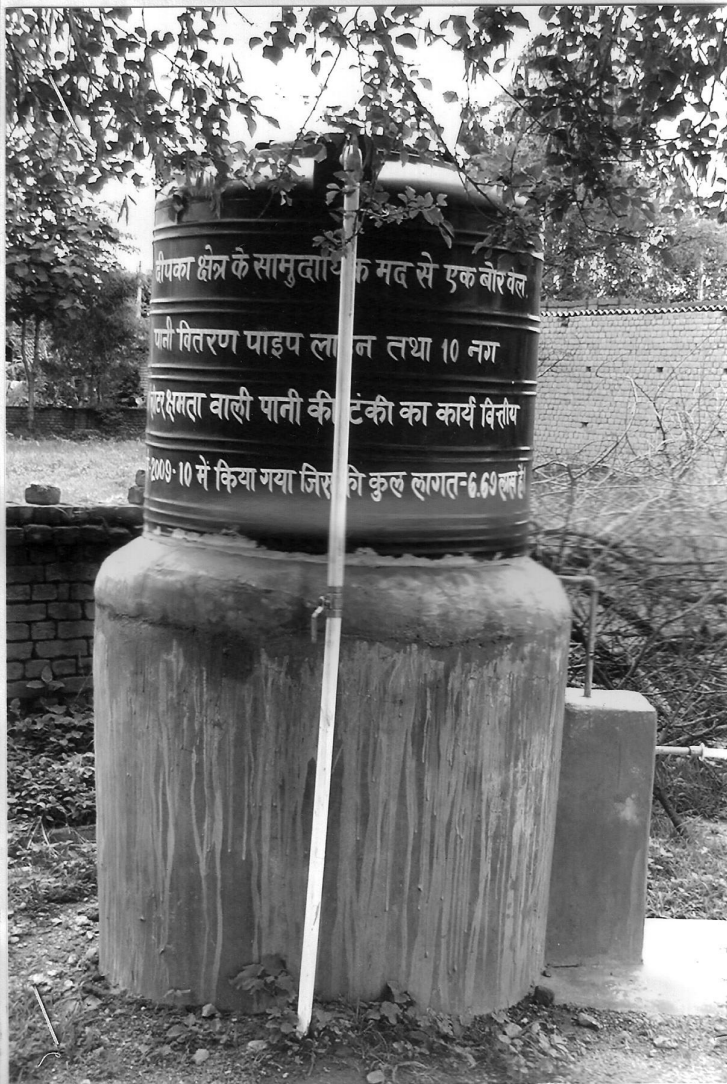 दीपका क्षेत्र के सामुदायिक मद से एक बोर वेल,
पानी वितरण पाइप लाईन तथा 10 नग
क्षमता वाली पानी की टंकी का कार्य वित्तीय
2009-10 में किया गया जिसकी कुल लागत-6.69 लाख है।